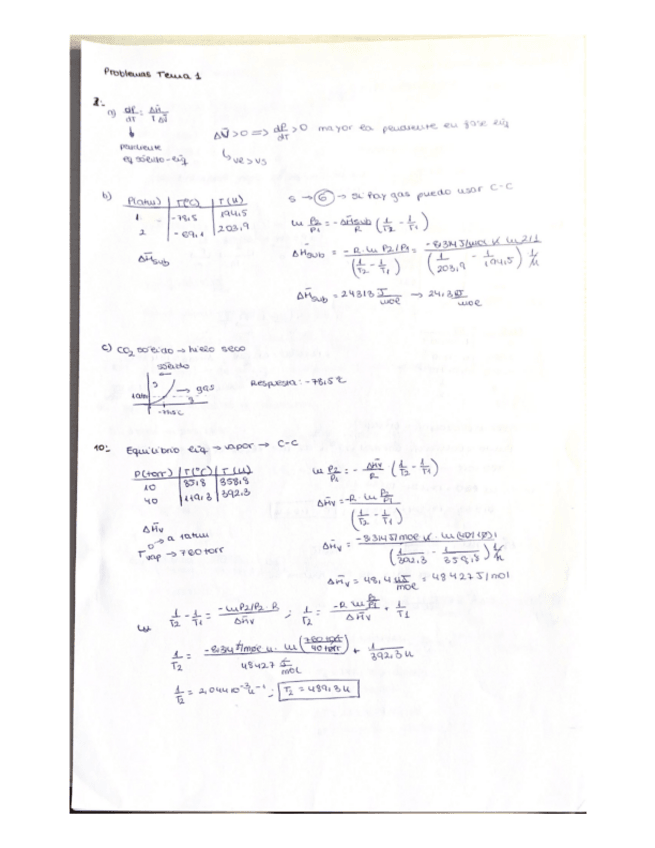 Problemas Tema 1
a) dP/dT = ΔH̄/TΔV̄
ΔV̄ > 0 => dP/dT > 0 mayor es pendiente en fase líq
pendiente
eq sólido-líq
b)
P(atm) | T(ºC) | T(K)
1 | -78,5 | 194,5
2 | -69,1 | 203,9
ΔH̄sub
S → G → Si hay gas puedo usar C-C
ln P2/P1 = - ΔH̄sub/R (1/T2 - 1/T1)
ΔH̄sub = -R · ln P2/P1 / (1/T2 - 1/T1) = -8,314 J/mol K ln 2/1 / (1/203,9 - 1/194,5) 1/K
ΔH̄sub = 24313 J/mol → 24,3 kJ/mol
c) CO2 sólido → hielo seco
sólido
S → gas
1 atm
Respuesta: -78,5ºC
10:- Equilibrio líq → vapor → C-C
P(torr) | T(ºC) | T(K)
10 | 85,8 | 358,8
40 | 119,3 | 392,3
ΔH̄v
→ a 1 atm
Tvap → 760 torr
ln P2/P1 = - ΔH̄v/R (1/T2 - 1/T1)
ΔH̄v = -R · ln P2/P1 / (1/T2 - 1/T1)
ΔH̄v = -8,314 J/mol K · ln (40/10) / (1/392,3 - 1/358,8) 1/K
ΔH̄v = 48,4 kJ/mol = 48427 J/mol
1/T2 - 1/T1 = -ln P2/P1 · R / ΔH̄v ; 1/T2 = -R ln P2/P1 / ΔH̄v + 1/T1
1/T2 = -8,314 J/mol K · ln (760 torr/40 torr) / 48427 J/mol + 1/392,3 K
1/T2 = 2,044·10⁻³ K⁻¹ ; T2 = 489,3 K